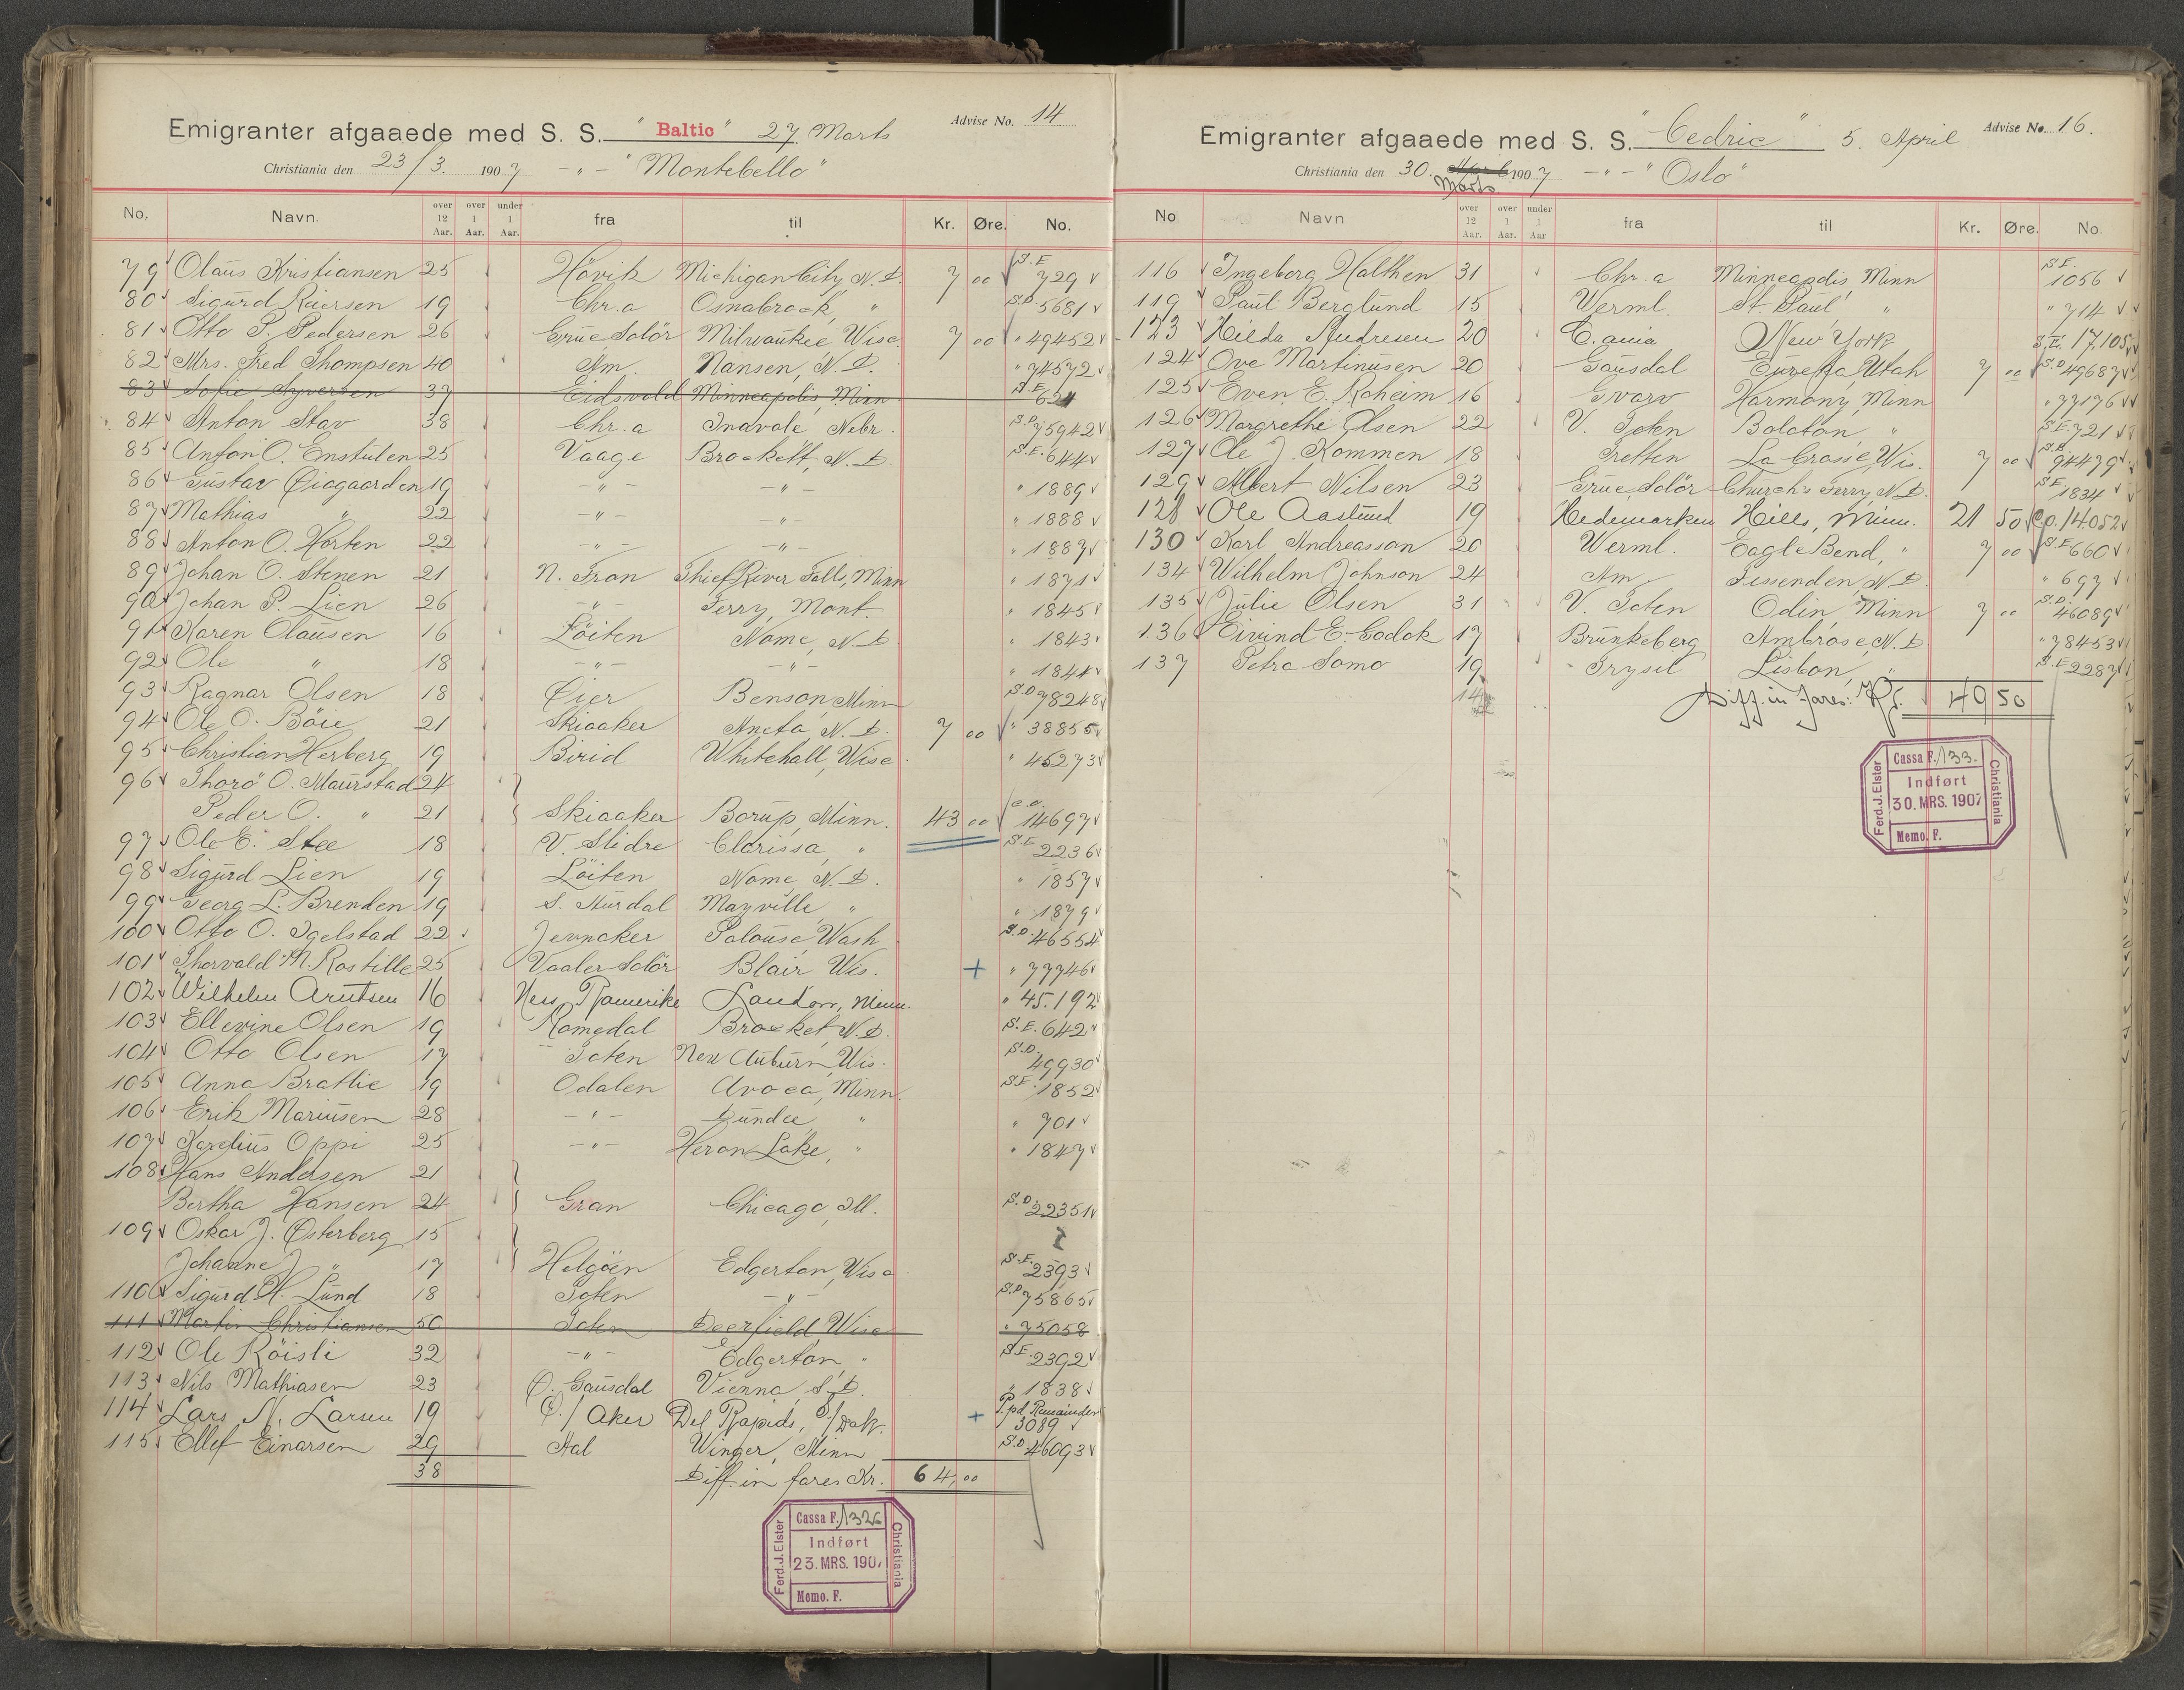 Advise No. 14
Emigranter afgaaede med S. S. "Baltic" 27 Marts
Christiania den 23/3. 1907 -"- "Montebello"
No. Navn. over 12 Aar. over 1 Aar. under 1 Aar. fra til Kr. Øre. No.
79 Olaus Kristiansen 25 Hövik Michigan City, N. D. 7 00 S.E. 729
80 Sigurd Reiersen 19 Chr.a Osnabrock, " S.D. 5681
81 Otto P. Pedersen 26 Grue Solör Milwaukie Wisc. 7 00 " 49452
82 Mrs. Fred Thompsen 40 Am. Nansen, N. D. " 74572
83 Sofie Syversen 37 Eidsvold Minneapolis, Minn S.E. 624
84 Anton Stav 38 Chr.a Inavale, Nebr. S.D. 75942
85 Anton O. Enstuten 25 Vaage Brockett, N. D. S.E. 644
86 Gustav Øiagaarden 19 -"- -"- " 1889
87 Mathias " 22 -"- -"- " 1888
88 Anton O. Horten 22 -"- -"- " 1887
89 Johan O. Stenen 21 N. Fron Thief River Falls, Minn " 1871
90 Johan P. Lien 26 -"- Terry, Mont. " 1845
91 Karen Olausen 16 Löiten Nome, N. D. " 1843
92 Ole " 18 -"- -"- " 1844
93 Ragnar Olsen 18 Øier Benson Minn S.D. 78248
94 Ole O. Böie 21 Skiaaker Aneta, N. D. 7 00 " 38855
95 Christian Herberg 19 Birid Whitehall, Wisc. " 45273
96 Thorö O. Maurstad 24
Peder O. " 21 Skiaaker Borup, Minn. 43 00 C.O. 14697
97 Ole E. Stee 18 V. Slidre Clarissa, " S.E. 2236
98 Sigurd Lien 19 Löiten Nome, N. D. " 1857
99 Georg L. Brenden 19 S. Aurdal Mayville, " " 1879
100 Otto O. Igelstad 22 Jevnaker Palouse, Wash S.D. 46554
101 Thorvald M. Rostille 25 Vaaler Solör Blair Wis. + " 77746
102 Wilhelm Arntsen 16 Nes, Romerike London, Minn. " 45.192
103 Ellevine Olsen 19 Romedal Brocket, N. D. S.E. 642
104 Otto Olsen 17 Toten New Auburn, Wis. S.D. 49930
105 Anna Bratlie 19 Odalen Avoca, Minn. S.E. 1852
106 Erik Mariusen 28 -"- Dundee, " " 701
107 Karelius Oppi 25 -"- Heron Lake, " " 1847
108 Hans Andersen 21
Bertha Hansen 24 Gran Chicago, Ill. S.D. 22351
109 Oskar J. Østerberg 15
Johanne J. " 17 Helgöen Edgerton, Wisc. S.E. 2393
110 Sigurd H. Lund 18 Toten -"- S.D. 75865
111 Martin Christiansen 50 Toten Deerfield, Wisc " 75058
112 Ole Röisli 32 -"- Edgerton, " S.E. 2392
113 Nils Mathiasen 23 Ø. Gausdal Vienna, S. D. " 1838
114 Lars N. Larsen 19 Ø./Aker Del Rapids, S/Dak. + P.pd. Remainder 3089
115 Ellef Einarsen 29 Aal Winger, Minn S.D. 46093
38 Diff. in fares Kr. 64,00
Ferd. J. Elster
Cassa F. 1326
Indført
23. MRS. 1907
Memo. F.
Christiania
Advise No. 16.
Emigranter afgaaede med S. S. "Cedric" 5. April
Christiania den 30. Marts 1907 -"- "Oslo"
No Navn over 12 Aar. over 1 Aar. under 1 Aar fra til Kr. Øre. No.
116 Ingeborg Halthen 31 Chr.a Minneapolis, Minn S.E. 1056
119 Paul Berglund 15 Werml. St. Paul, " " 714
123 Hilda Andresen 20 C.ania New York S.E. 17.105
124 Ove Martinusen 20 Gausdal Eureka, Utah 7 00 S.D. 49687
125 Even E. Roheim 16 Gvarv Harmony, Minn " 77176
126 Margrethe Olsen 22 V. Toten Bolaton, " S.E. 721
127 Ole J. Kommen 18 Tretten La Crosse, Wis. 7 00 S.D. 94479
129 Albert Nilsen 23 Grue, Solör Church's Ferry, N. D. S.E. 1834
128 Ole Aaslund 19 Hedemarken Hills, Minn. 21 50 C.O. 14.052
130 Karl Andreasson 20 Werml. Eagle Bend, " 7 00 S.E. 660
134 Wilhelm Johnson 24 Am. Fessenden, N. D. " 697
135 Julie Olsen 31 V. Toten Odin, Minn 7 00 S.D. 46089
136 Eivind E. Godok 17 Brunkeberg Ambrose, N. D. " 78453
137 Petra Somo 19 Trysil Lisbon, " S.E. 2287
14 Diff. in fares: Kr. 49 50
Ferd. J. Elster
Cassa F. 133.
Indført
30. MRS. 1907
Memo. F.
Christiania